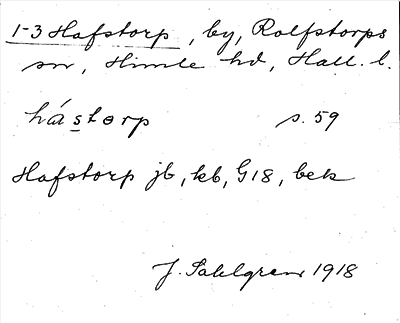 1-3 Hafstorp, by, Rolfstorps
sn, Himle hd, Hall. l.
hástorp s. 59
Hafstorp jb, kb, G18, bek
J. Sahlgren 1918